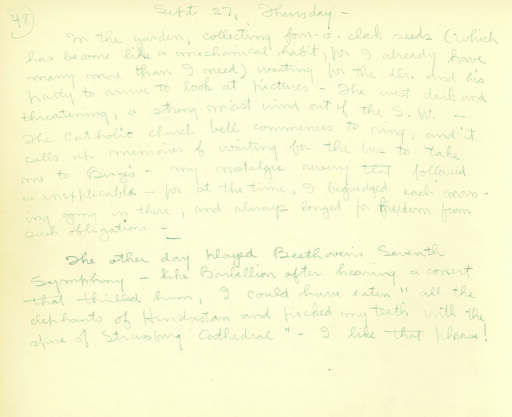 48
Sept 27, Thursday -
In the garden, collecting four-o-clock seeds (which
has become like a mechanical habit, for I already have
many more than I need) waiting for the and his
party to arrive to look at pictures - The west dark and
threatening, a strong moist wind out of the S.W. -
The Catholic church bell commences to ring, and it
calls up memories of waiting for the bus to take
me to Birge's - my nostalgic that followed
is inexplicable - for at the time, I begrudged each morn-
ing going in there, and always longed for freedom from
such obligations -
The other day played Beethoven's Seventh
Symphony - like Barbellion after hearing a concert
that thrilled him, I could have eaten "all the
elephants of Hindustan and picked my teeth with the
spire of Strassburg Cathedral" - I like that phrase!